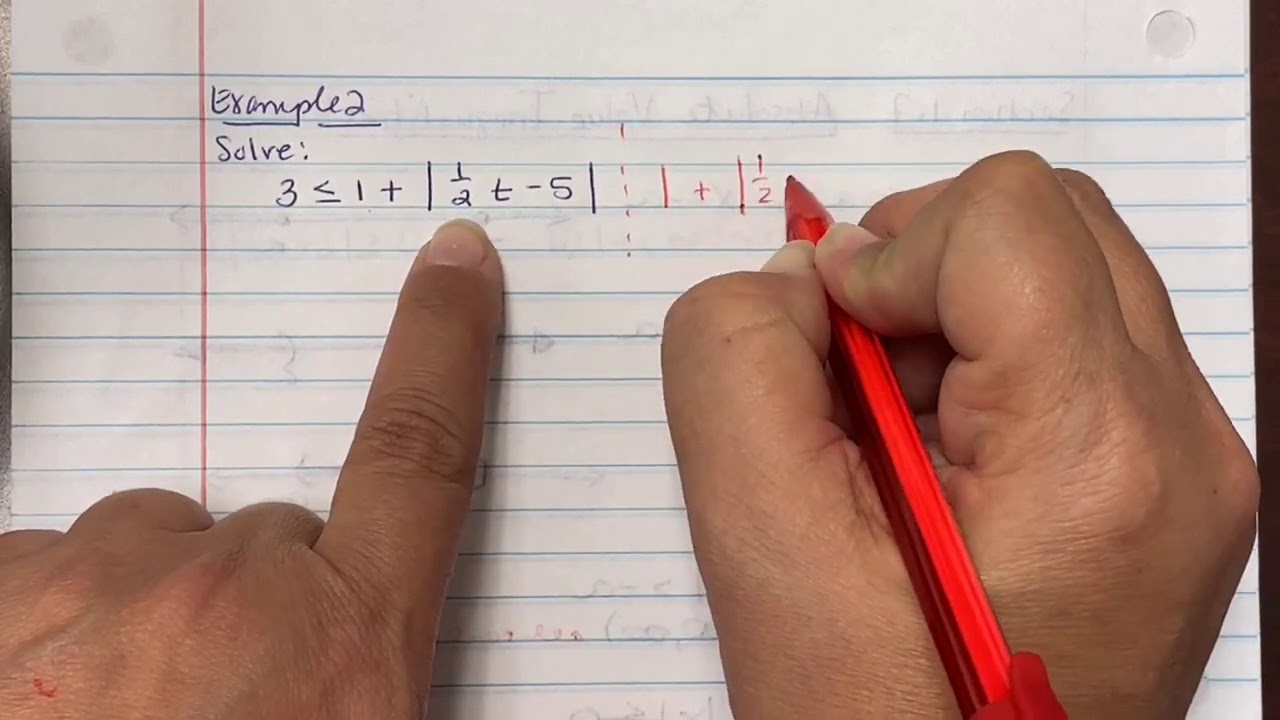 Example 2
Solve:
3 ≤ 1 + |1/2 t - 5| 1 + |1/2